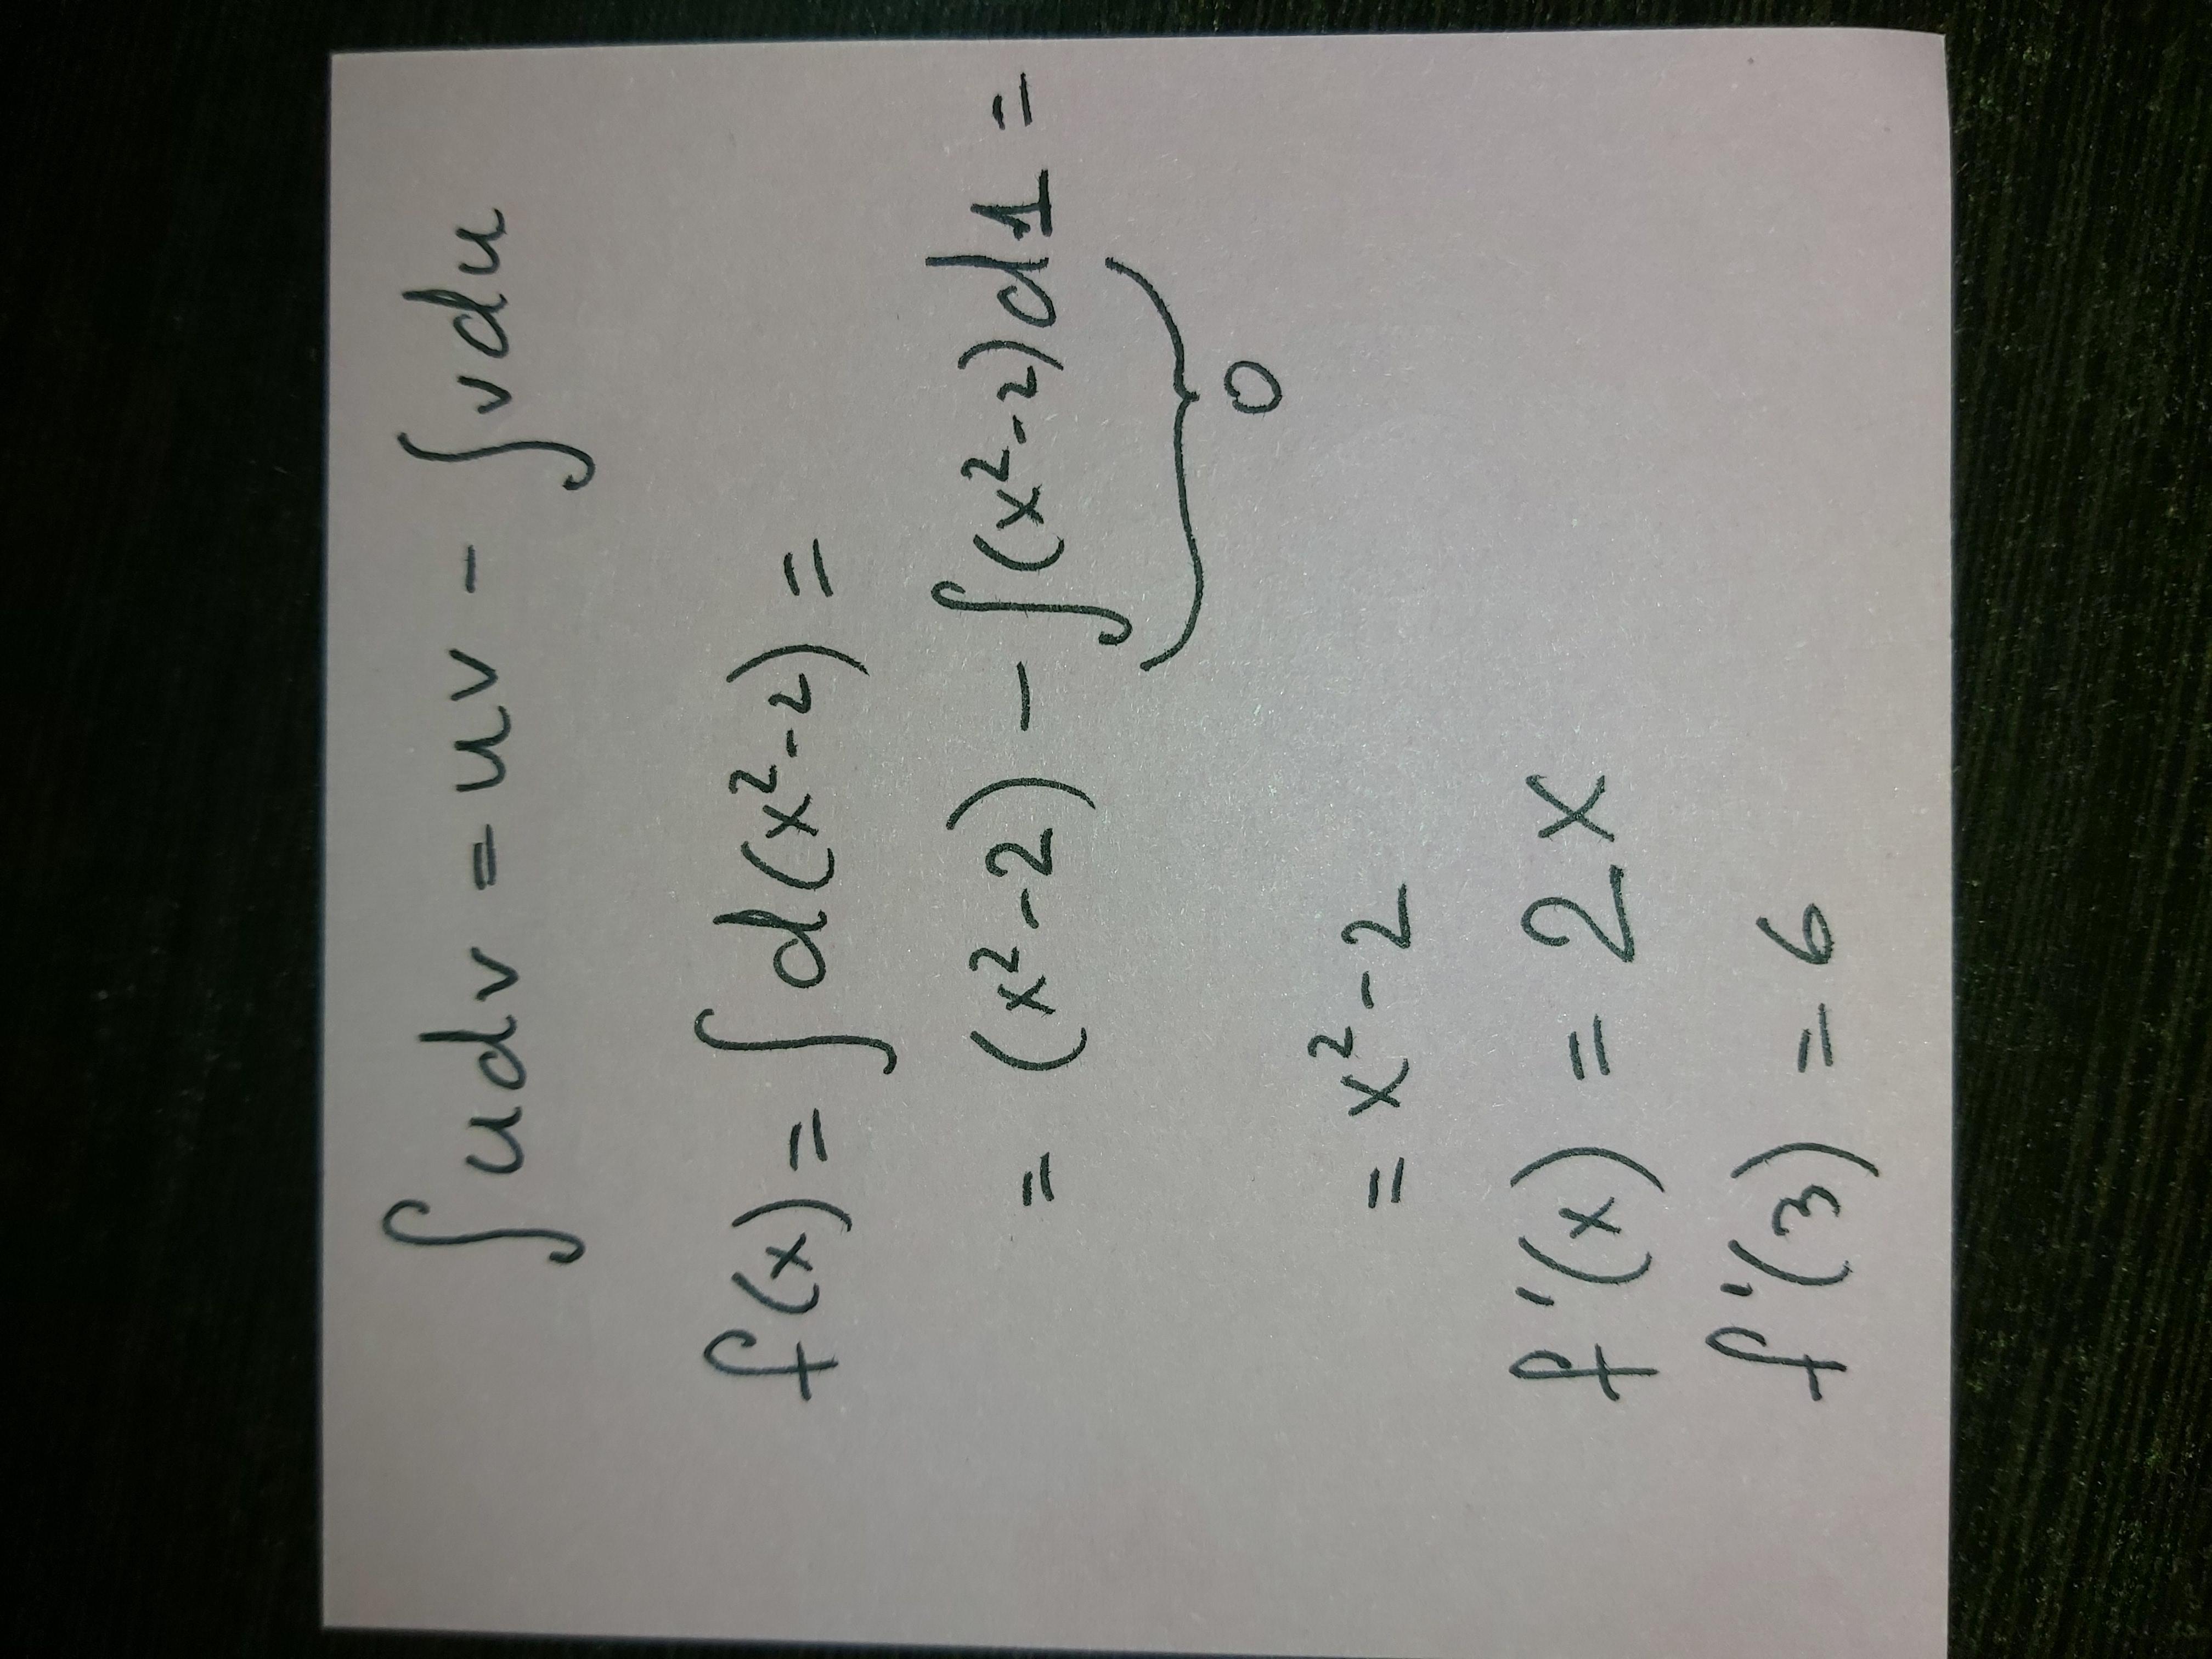 ∫udv = uv - ∫vdu
f(x) = ∫d(x²-2) =
= (x²-2) - ∫(x²-2)d1 =
0
= x²-2
f'(x) = 2x
f'(3) = 6